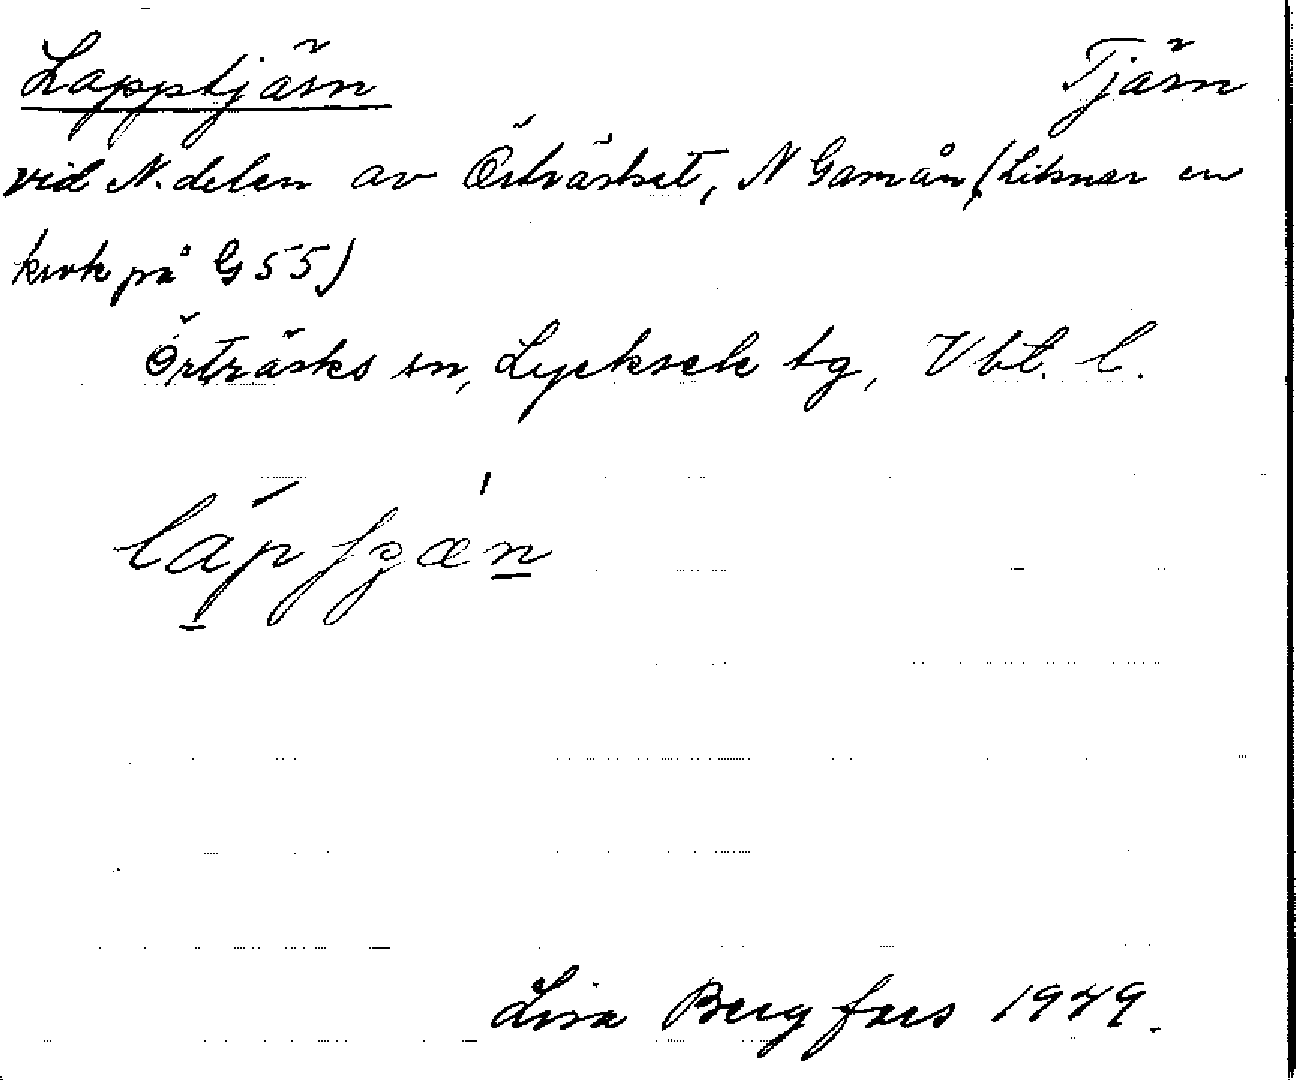 Lapptjärn Tjärn
vid N. delen av Örträsket, N Gamån, (Liknar en
krok på G 55)
Örträsks sn, Lycksele tg, Vbt. l.
Lisa Bergfors 1949.